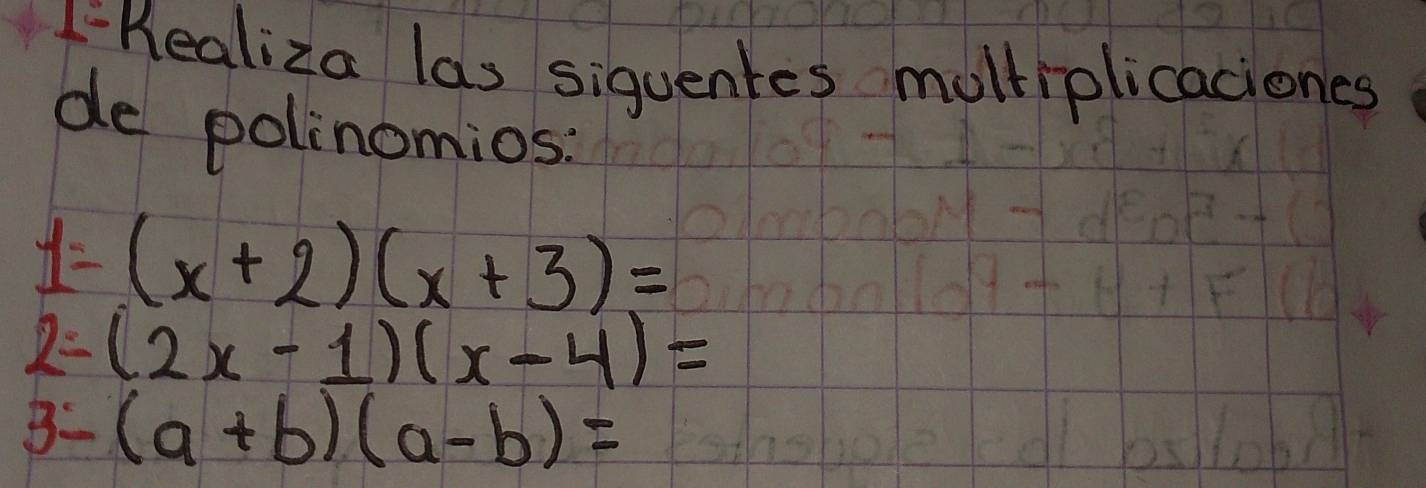 1=Realiza las siguentes multiplicaciones
de polinomios:
1= (x+2)(x+3)=
2=(2x-1)(x-4)=
3=(a+b)(a-b)=